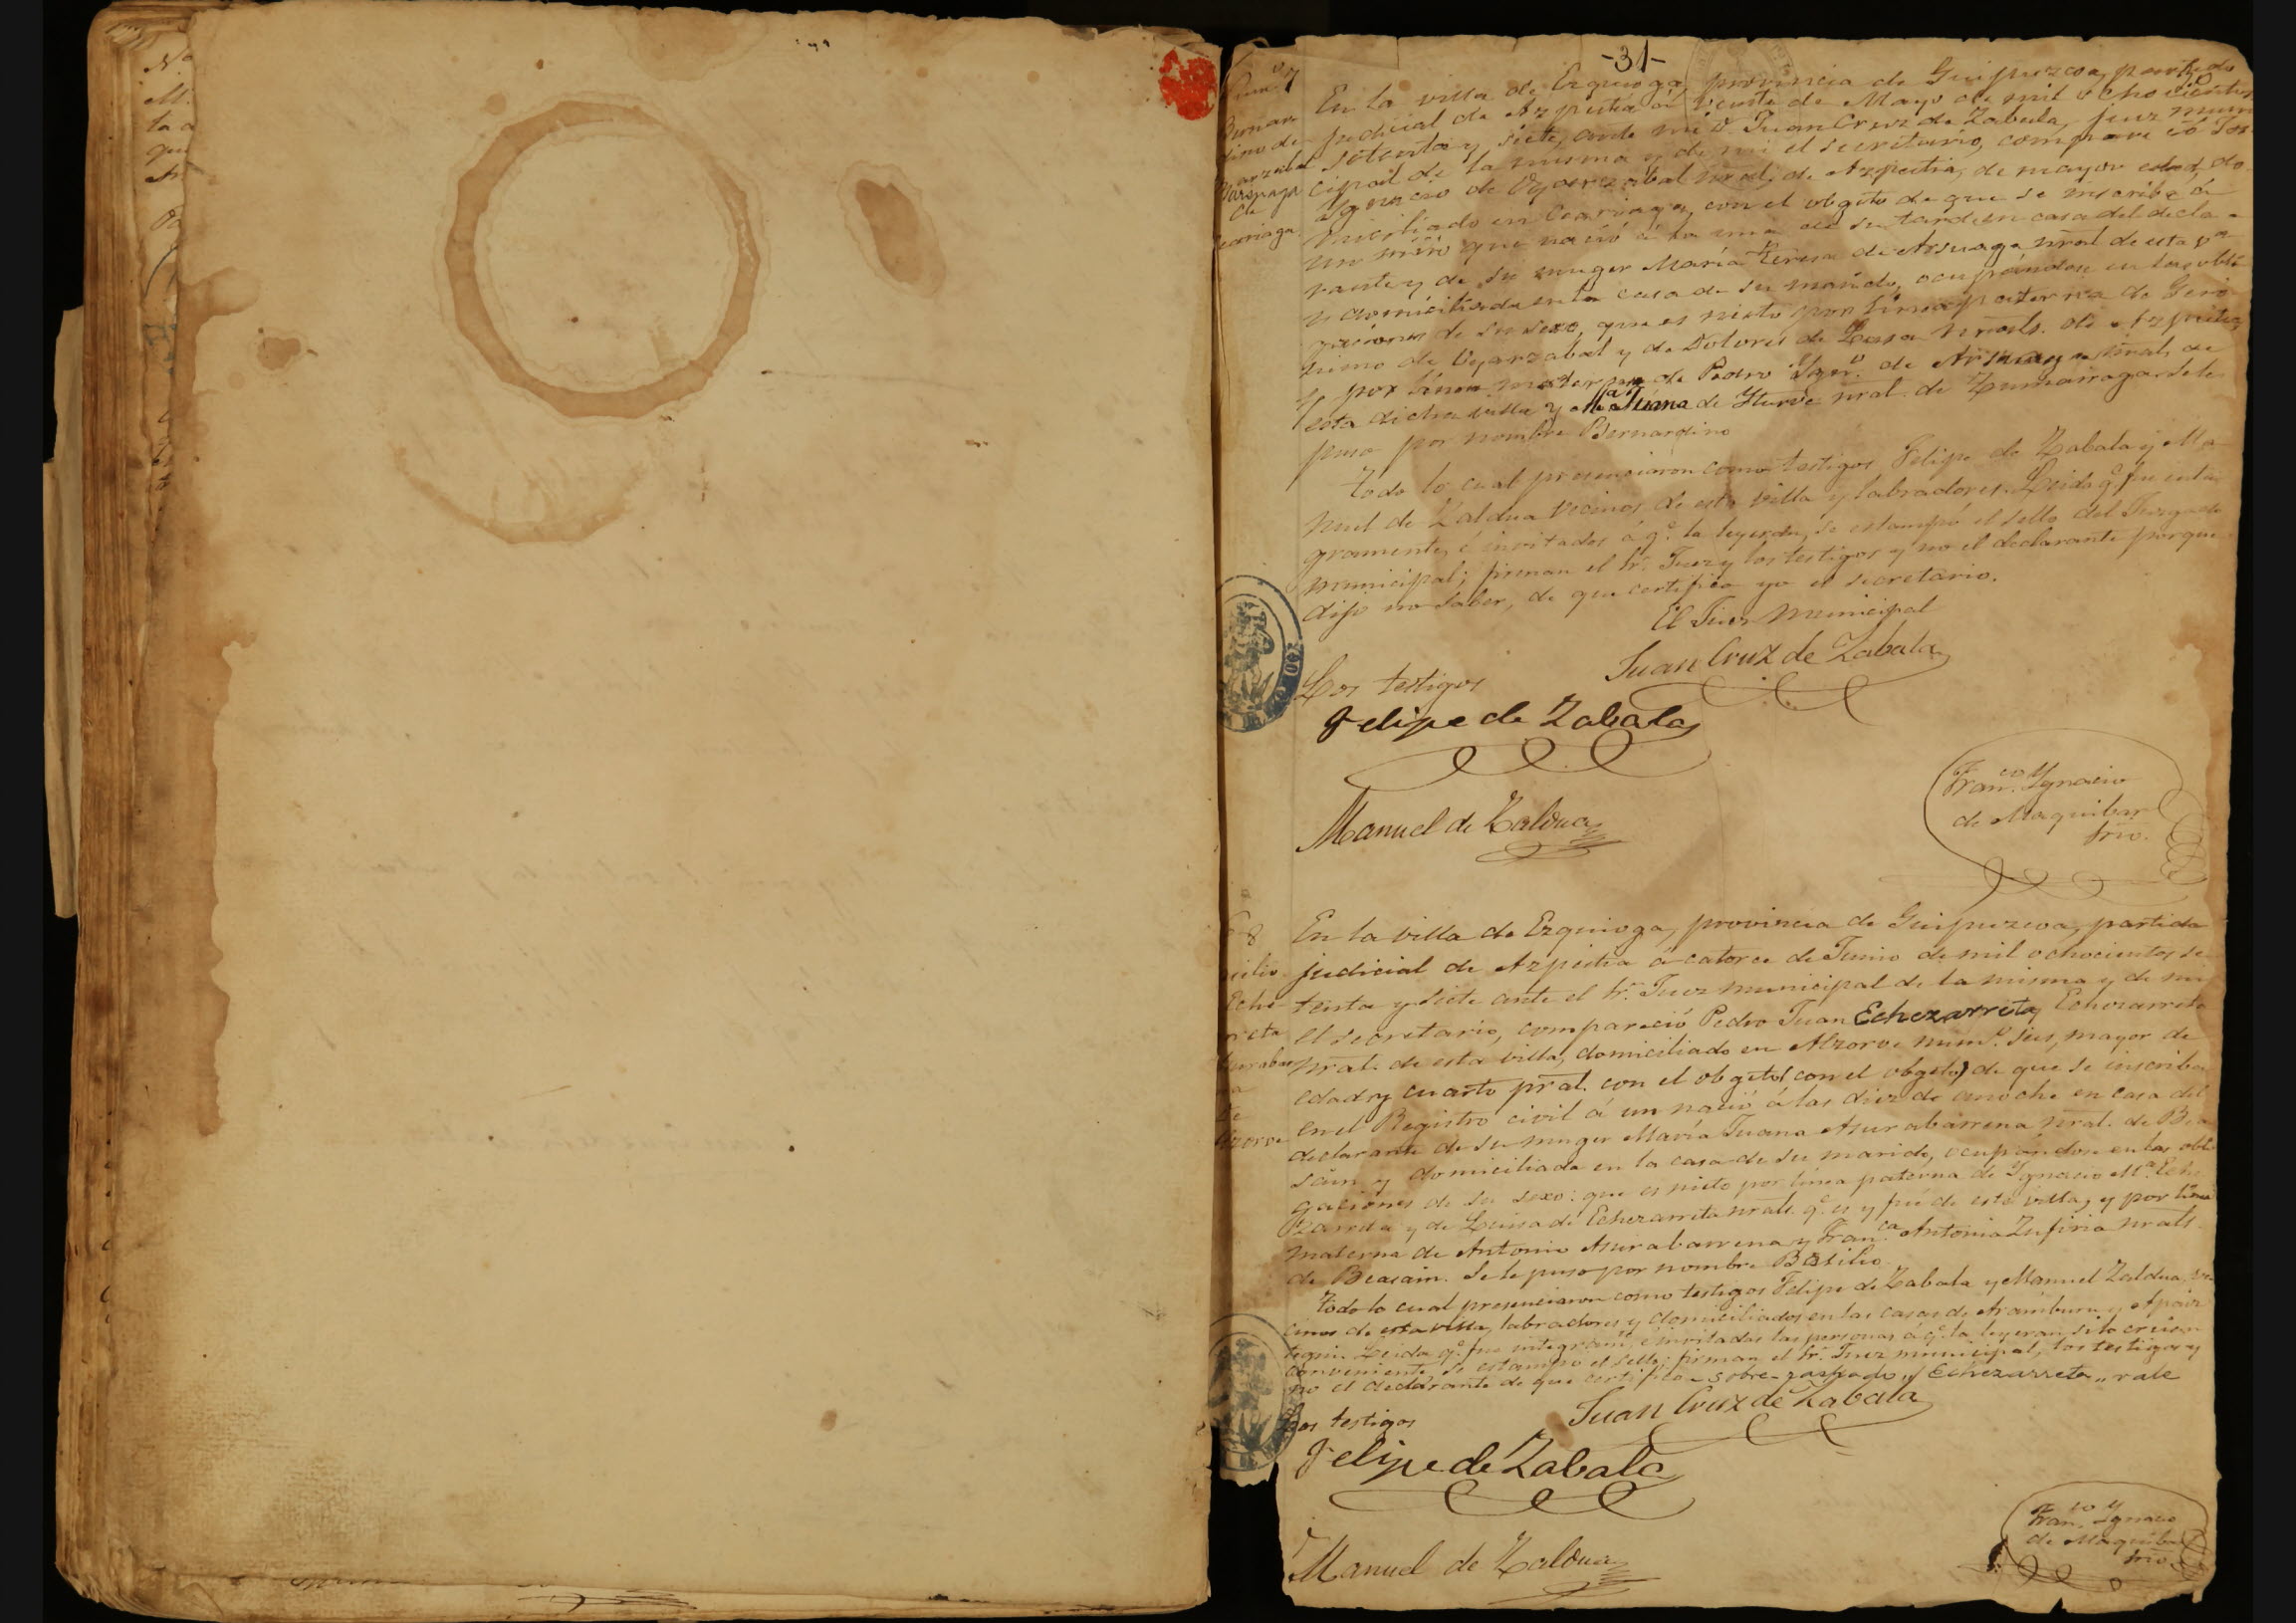 -31-
7
En la villa de Ezquioga, provincia de Guipuzcoa, partido
judicial de Azpeitia á veinte de Mayo de mil ochocientos
setenta y siete, ante mi D. Juan Cruz de Zabala, juez muni
cipal de la misma y de mi el secretario, compareció Jose
Ygnacio de Oyarzabal nral. de Azpeitia, de mayor edad, do
miciliado en Ocariaga, con el obgeto de que se inscriba á
un niño que nació á la una de su tarde en casa del decla
rante y de su muger María Teresa de Arsuaga nral de esta va
y domiciliada en la casa de su marido, ocupándose en las obli
gaciones de su sexo, que es nieto por linea paterna de Geró
nimo de Oyarzabal y de Dolores de Lasa nrals. de Azpeitia,
y por linea materna de Pedro Ygno. de Arsuaga nral, de
esta dicha villa y de Ma. Juana de Yturbe nral. de Zumarraga. Se le
puso por nombre Bernardino
Todo lo cual presenciaron como testigos Felipe de Zabala y Ma
nuel de Zaldua vecinos de esta villa y labradores. Leida q.e fue inte
gramente, é invitados á q.e la leyeran, se estampó el sello del Juzgado
municipal; firman el Sr. Juez y los testigos y no el declarante porque
dijo no saber, de que certifico yo el secretario.
El Juez Municipal
Juan Cruz de Zabala
Los testigos
Felipe de Zabala
Fran.co Ygnacio
de Maquibar
Srio.
Manuel de Zaldua
8
En la villa de Ezquioga, provincia de Guipuzcoa, partido
judicial de Azpeitia á catorce de Junio de mil ochocientos se
tenta y siete ante el Sr. Juez municipal de la misma y de mi
el secretario, compareció Pedro Juan Echezarreta, Echezarreta
nral. de esta villa, domiciliado en Alzorve num.o seis, mayor de
edad y cuarto pral. con el obgeto (con el obgeto) de que se inscriba
en el Registro civil á un nació á las diez de anoche en casa del
declarante de su muger María Juana Asurabarrena nral. de Bea
sain y domiciliada en la casa de su marido, ocupándose en las obli
gaciones de su sexo: que es nieto por línea paterna de Ygnacio M.a Eche
zarreta y de Luisa de Echezarreta nrals. q.e es y fué de esta villa, y por línea
materna de Antonio Asurabarrena y Fran.ca Antonia Zufiria nrals.
de Beasain. Se le puso por nombre Basilio.
Todo lo cual presenciaron como testigos Felipe de Zabala y Manuel Zaldua, ve
cinos de esta villa, labradores y domiciliados en las casas de Aramburu y Apaiz
tegui. Leida q.e fue integram.te é invitadas las personas á q.e la leyeran si lo creían
conveniente, se estampó el sello; firman el Sr. Juez municipal, los testigos y
no el declarante de que certifico = sobre-raspado "Echezarreta" vale
Juan Cruz de Zabala
Los testigos
Felipe de Zabala
Fran.co Ygnacio
de Maquibar
Srio.
Manuel de Zaldua